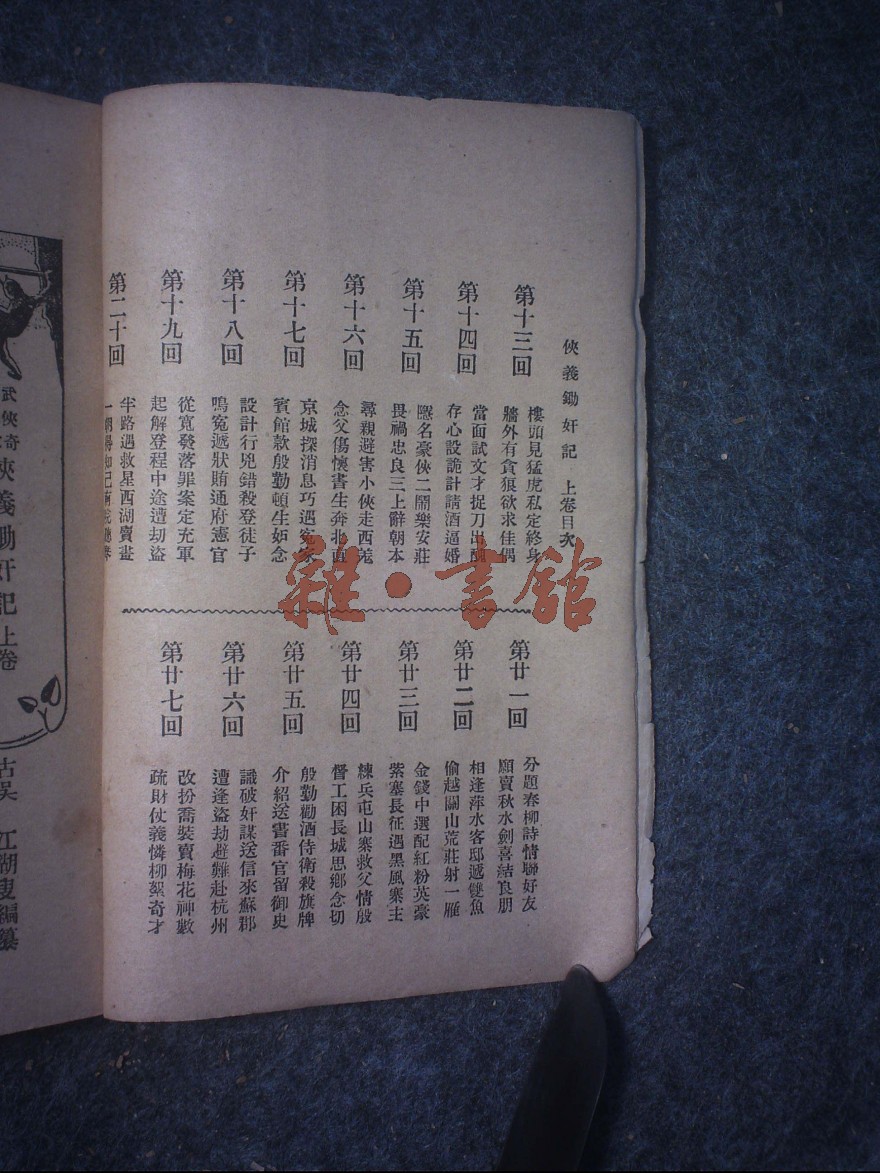 俠義鋤奸記 上卷目次
第十三回
樓頭見猛虎私定終身
牆外有貪狼欲求佳偶
第十四回
當面試文才捉刀出醜
存心設詭計請酒逼婚
第十五回
慝名豪俠二鬧樂安莊
畏禍忠良三上辭朝本
第十六回
尋親避害小俠走西羗
念父傷懷書生奔北直
第十七回
京城探消息巧遇冤家
賓館款殷勤頓生妒念
第十八回
設計行兇錯殺登徒子
鳴冤遞狀賄通府憲官
第十九回
從寬發落罪案定充軍
起解登程中途遭刧盜
第二十回
半路遇救星西湖賣畫
第廿一回
分題春柳詩情聯好友
願賣秋水劍喜結良朋
第廿二回
相逢萍水客邸遞雙魚
偷越關山荒莊射一雁
第廿三回
金錢中選配紅粉英豪
紫塞長征遇黑風寨主
第廿四回
練兵屯山寨救父情殷
督工困長城思鄉念切
第廿五回
殷勤勸酒侍衛殺旗牌
介紹送書番官留御史
第廿六回
識破奸謀送信來蘇郡
遭逢盜劫避難赴杭州
第廿七回
改扮喬裝賣梅花神數
疏財仗義憐柳絮奇才
武俠奇
俠義鋤奸記上卷
古吳 江湖叟編纂
雜·書館